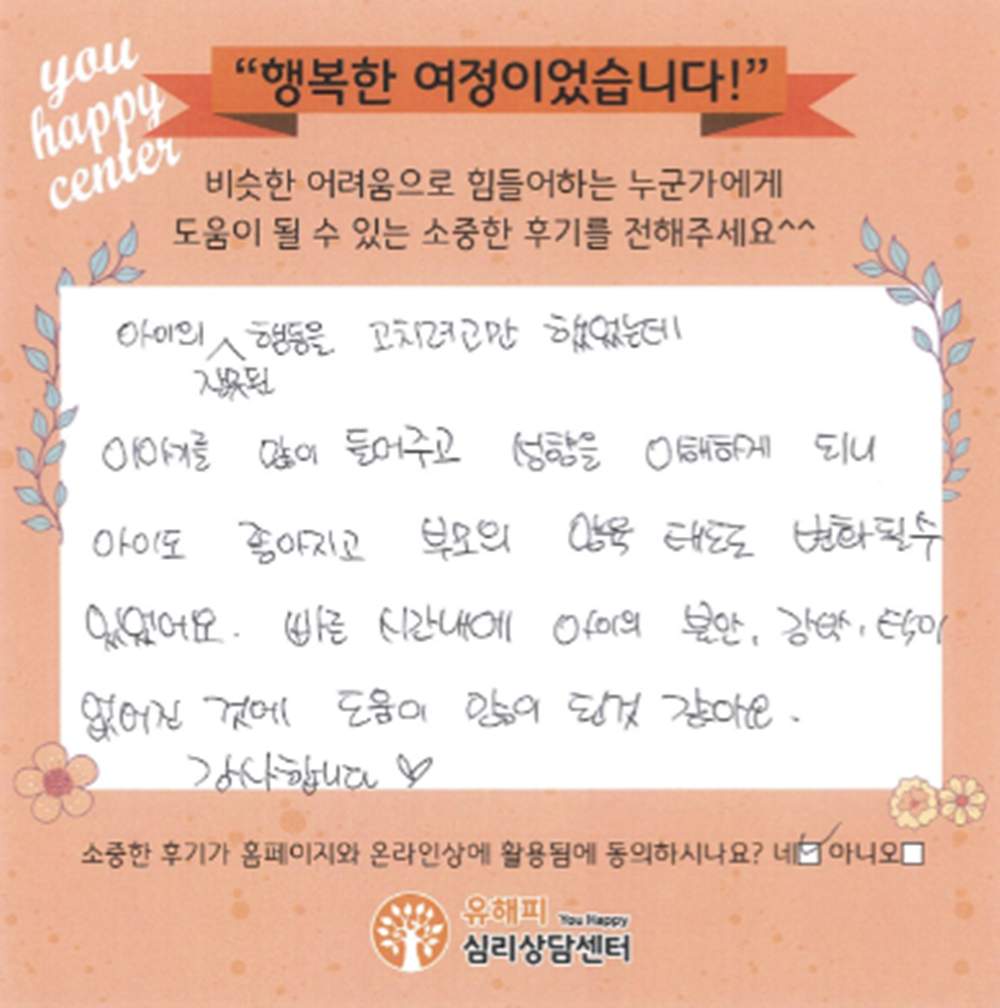 you
happy
center
“행복한 여정이었습니다!”
비슷한 어려움으로 힘들어하는 누군가에게
도움이 될 수 있는 소중한 후기를 전해주세요^^
아이의 행동을 고치려고만 했었는데
잘못된
이야기를 많이 들어주고 성향을 이해하게 되니
아이도 좋아지고 부모의 양육 태도도 변화될수
있었어요. 빠른 시간내에 아이의 불안, 강박, 틱이
없어진 것에 도움이 많이 된것 같아요.
감사합니다 ♡
소중한 후기가 홈페이지와 온라인상에 활용됨에 동의하시나요? 네☑ 아니오☐
유해피 You Happy
심리상담센터